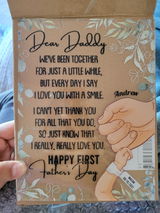 Dear Daddy
WE'VE BEEN TOGETHER
FOR JUST A LITTLE WHILE,
BUT EVERY DAY I SAY
I LOVE YOU WITH A SMILE.
Andrew
I CAN'T YET THANK YOU
FOR ALL THAT YOU DO,
SO JUST KNOW THAT
I REALLY, REALLY LOVE YOU.
HAPPY FIRST
Fathers Day